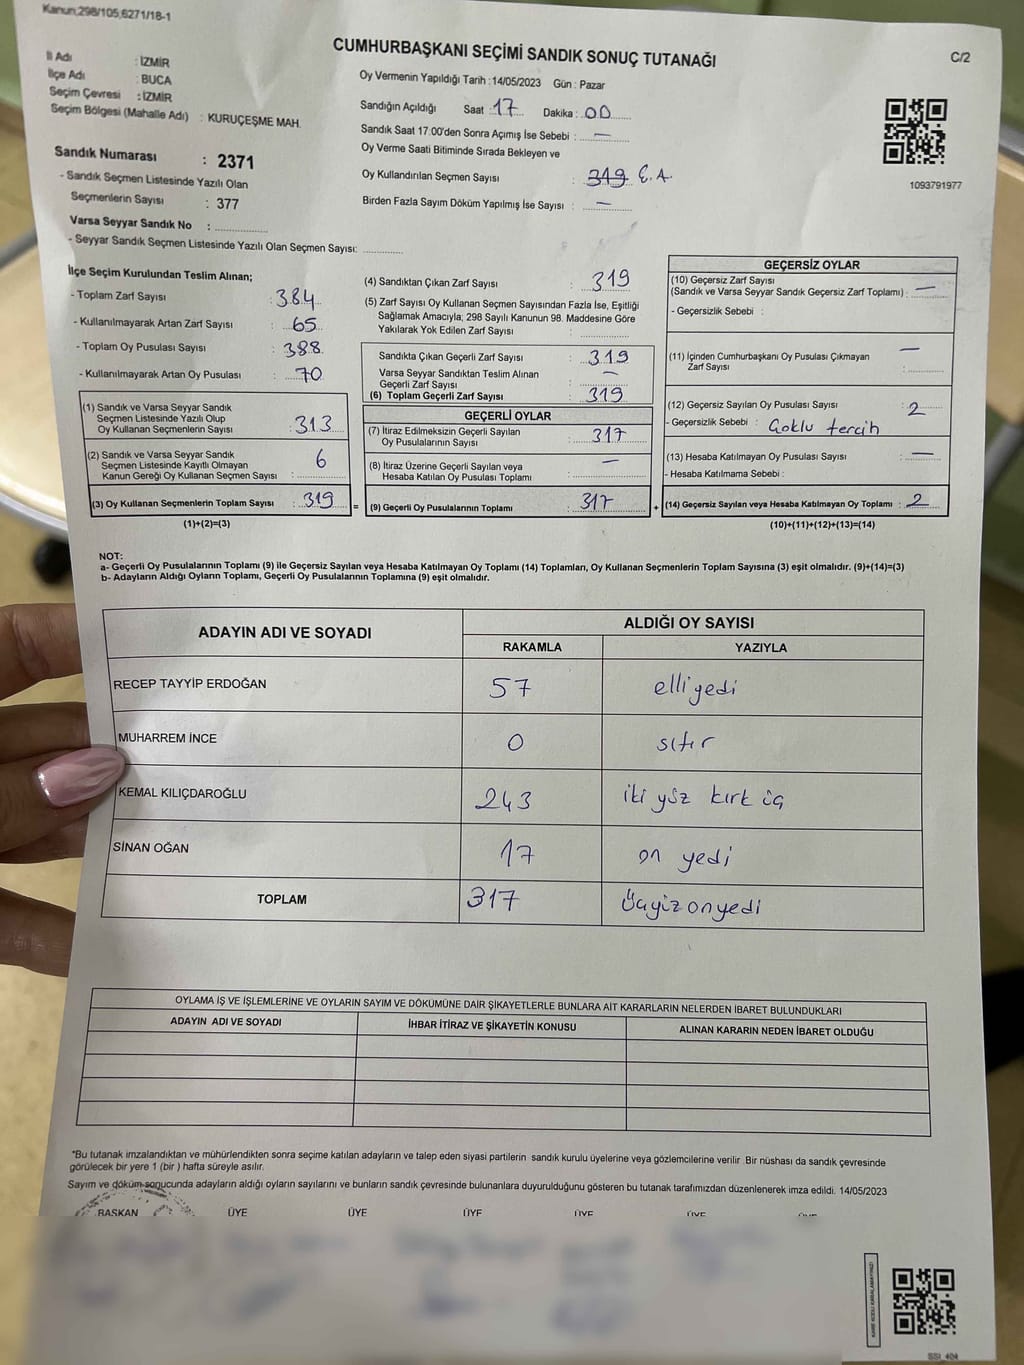 Kanun;298/105,6271/18-1
CUMHURBAŞKANI SEÇİMİ SANDIK SONUÇ TUTANAĞI
C/2
İl Adı : İZMİR
İlçe Adı : BUCA
Seçim Çevresi : İZMİR
Seçim Bölgesi (Mahalle Adı) : KURUÇEŞME MAH.
Sandık Numarası : 2371
- Sandık Seçmen Listesinde Yazılı Olan
Seçmenlerin Sayısı : 377
Varsa Seyyar Sandık No :
- Seyyar Sandık Seçmen Listesinde Yazılı Olan Seçmen Sayısı:
Oy Vermenin Yapıldığı Tarih : 14/05/2023 Gün : Pazar
Sandığın Açıldığı Saat : 17 Dakika : 00
Sandık Saat 17:00'den Sonra Açımış İse Sebebi : —
Oy Verme Saati Bitiminde Sırada Bekleyen ve
Oy Kullandırılan Seçmen Sayısı : 319 E.A.
Birden Fazla Sayım Döküm Yapılmış İse Sayısı : —
1093791977
İlçe Seçim Kurulundan Teslim Alınan;
- Toplam Zarf Sayısı : 384
- Kullanılmayarak Artan Zarf Sayısı : 65
- Toplam Oy Pusulası Sayısı : 388
- Kullanılmayarak Artan Oy Pusulası : 70
(1) Sandık ve Varsa Seyyar Sandık
Seçmen Listesinde Yazılı Olup
Oy Kullanan Seçmenlerin Sayısı : 313
(2) Sandık ve Varsa Seyyar Sandık
Seçmen Listesinde Kayıtlı Olmayan
Kanun Gereği Oy Kullanan Seçmen Sayısı : 6
(3) Oy Kullanan Seçmenlerin Toplam Sayısı : 319
(1)+(2)=(3)
=
(4) Sandıktan Çıkan Zarf Sayısı : 319
(5) Zarf Sayısı Oy Kullanan Seçmen Sayısından Fazla İse, Eşitliği
Sağlamak Amacıyla; 298 Sayılı Kanunun 98. Maddesine Göre
Yakılarak Yok Edilen Zarf Sayısı :
Sandıkta Çıkan Geçerli Zarf Sayısı : 319
Varsa Seyyar Sandıktan Teslim Alınan
Geçerli Zarf Sayısı : —
(6) Toplam Geçerli Zarf Sayısı : 319
GEÇERLİ OYLAR
(7) İtiraz Edilmeksizin Geçerli Sayılan
Oy Pusulalarının Sayısı : 317
(8) İtiraz Üzerine Geçerli Sayılan veya
Hesaba Katılan Oy Pusulası Toplamı : —
(9) Geçerli Oy Pusulalarının Toplamı : 317
+
GEÇERSİZ OYLAR
(10) Geçersiz Zarf Sayısı
(Sandık ve Varsa Seyyar Sandık Geçersiz Zarf Toplamı) : —
- Geçersizlik Sebebi :
(11) İçinden Cumhurbaşkanı Oy Pusulası Çıkmayan
Zarf Sayısı : —
(12) Geçersiz Sayılan Oy Pusulası Sayısı : 2
- Geçersizlik Sebebi : Çoklu tercih
(13) Hesaba Katılmayan Oy Pusulası Sayısı : —
- Hesaba Katılmama Sebebi :
(14) Geçersiz Sayılan veya Hesaba Katılmayan Oy Toplamı : 2
(10)+(11)+(12)+(13)=(14)
NOT:
a- Geçerli Oy Pusulalarının Toplamı (9) ile Geçersiz Sayılan veya Hesaba Katılmayan Oy Toplamı (14) Toplamları, Oy Kullanan Seçmenlerin Toplam Sayısına (3) eşit olmalıdır. (9)+(14)=(3)
b- Adayların Aldığı Oyların Toplamı, Geçerli Oy Pusulalarının Toplamına (9) eşit olmalıdır.
ADAYIN ADI VE SOYADI
ALDIĞI OY SAYISI
RAKAMLA YAZIYLA
RECEP TAYYİP ERDOĞAN 57 elli yedi
MUHARREM İNCE 0 sıfır
KEMAL KILIÇDAROĞLU 243 iki yüz kırk üç
SİNAN OĞAN 17 on yedi
TOPLAM 317 Üçyüz onyedi
OYLAMA İŞ VE İŞLEMLERİNE VE OYLARIN SAYIM VE DÖKÜMÜNE DAİR ŞİKAYETLERLE BUNLARA AİT KARARLARIN NELERDEN İBARET BULUNDUKLARI
ADAYIN ADI VE SOYADI İHBAR İTİRAZ VE ŞİKAYETİN KONUSU ALINAN KARARIN NEDEN İBARET OLDUĞU
*Bu tutanak imzalandıktan ve mühürlendikten sonra seçime katılan adayların ve talep eden siyasi partilerin sandık kurulu üyelerine veya gözlemcilerine verilir .Bir nüshası da sandık çevresinde
görülecek bir yere 1 (bir ) hafta süreyle asılır.
Sayım ve döküm sonucunda adayların aldığı oyların sayılarını ve bunların sandık çevresinde bulunanlara duyurulduğunu gösteren bu tutanak tarafımızdan düzenlenerek imza edildi. 14/05/2023
BAŞKAN ÜYE ÜYE ÜYE ÜYE ÜYE
KARE KODU KARALAMAYINIZ!
SSI_404